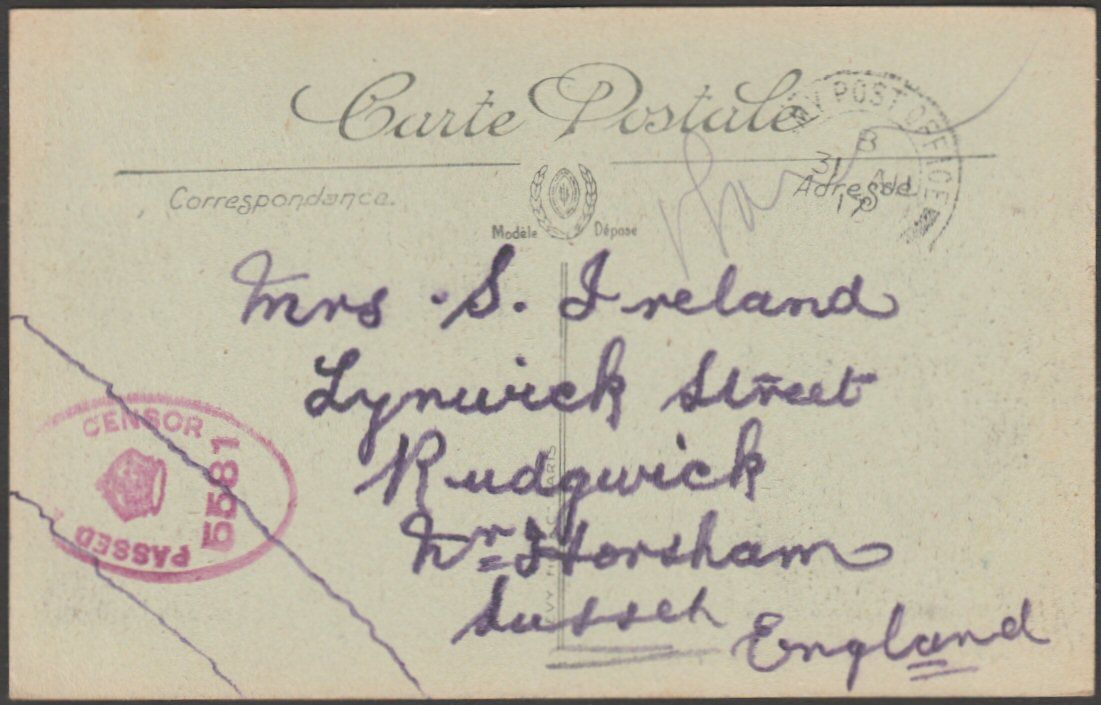 Carte Postale
POST OFFICE
B
31 AU
17
Correspondance.
Adresse
Modèle Déposé
Mrs. S. Ireland
Lynwick Street
Rudgwick
Nr Horsham
Sussex
England
CENSOR
5581
PASSED
PARIS